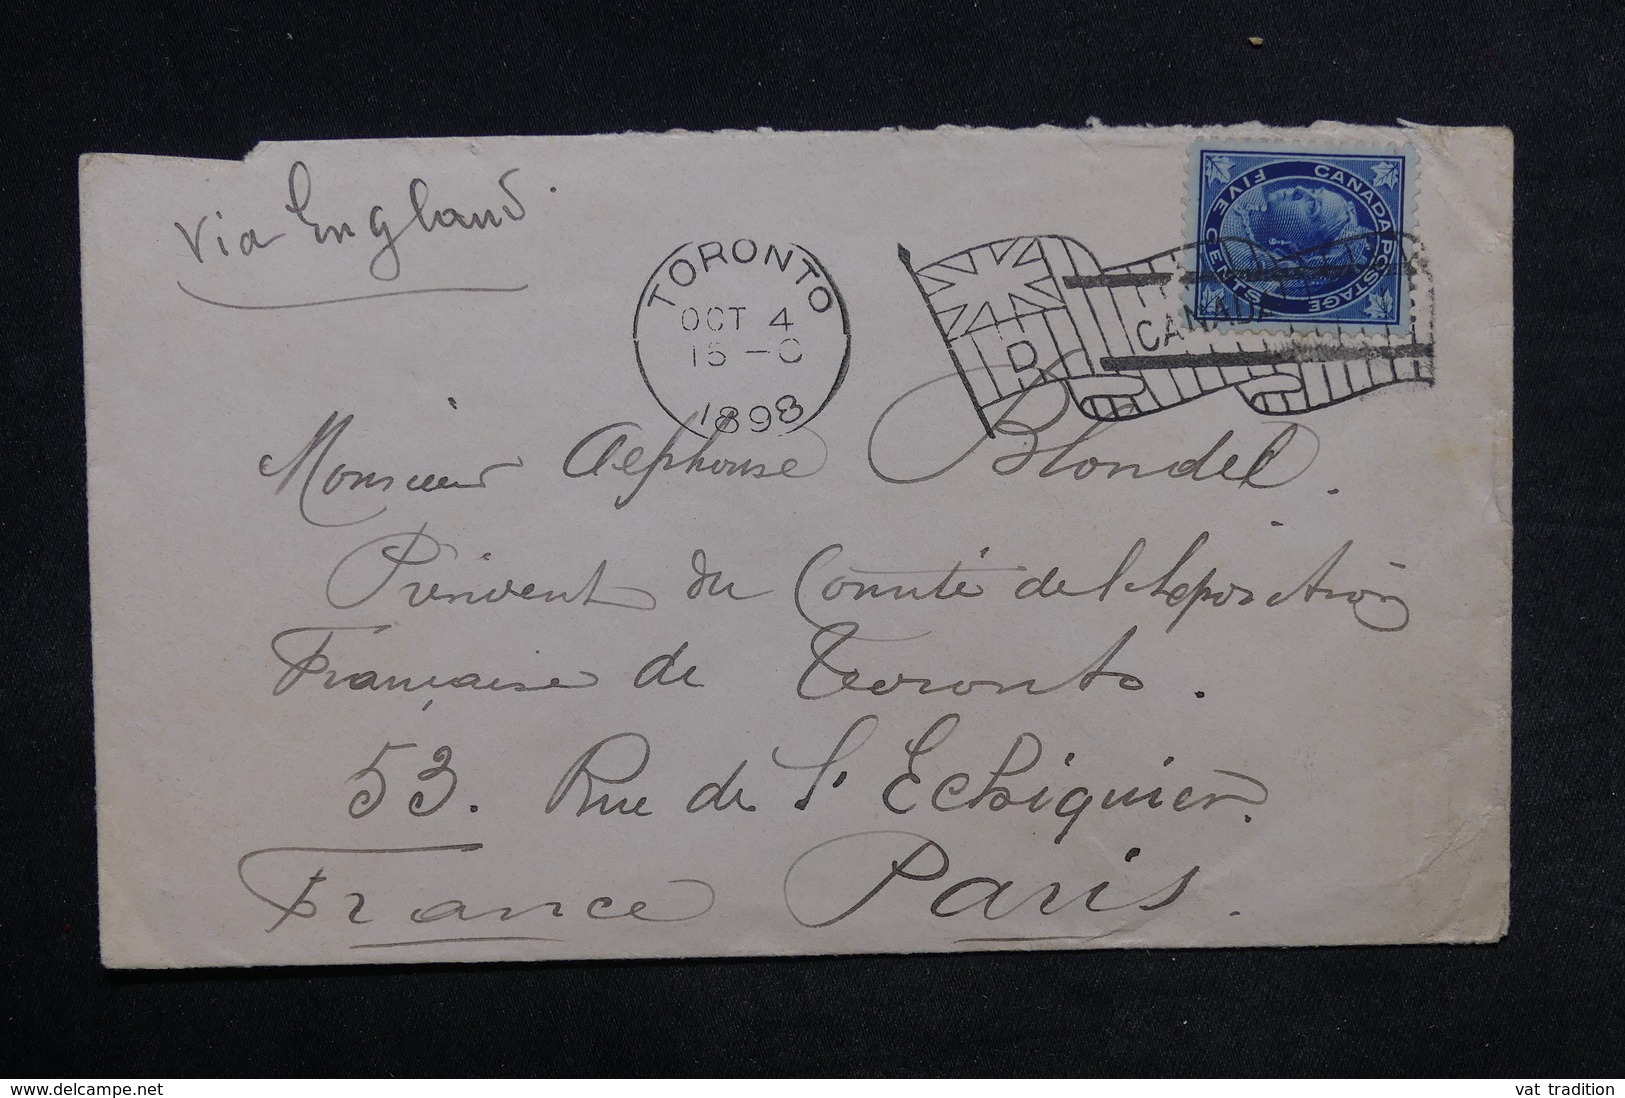 via England.
TORONTO
OCT 4
15 - 0
1898
CANADA
R
CANADA POSTAGE
FIVE CENTS
Monsieur Alphonse Blondel.
Président du Comité de l'Exposition
Française de Toronto.
53. Rue de l'Echiquier.
France Paris.
www.delcampe.net
vat_tradition